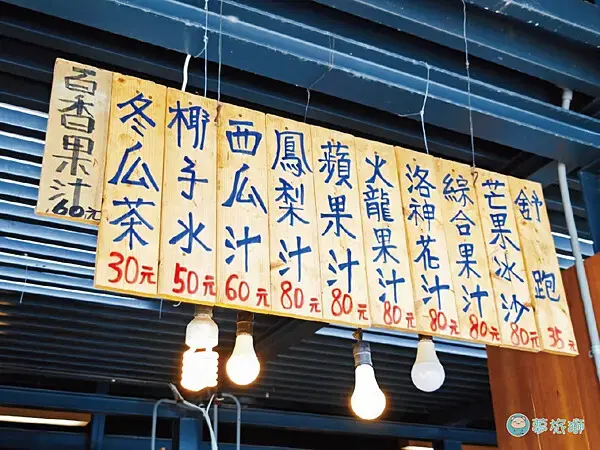 百香果汁
60元
冬瓜茶
30元
椰子水
50元
西瓜汁
60元
鳳梨汁
80元
蘋果汁
80元
火龍果汁
80元
洛神花汁
80元
綜合果汁
80元
芒果冰沙
80元
舒跑
35元